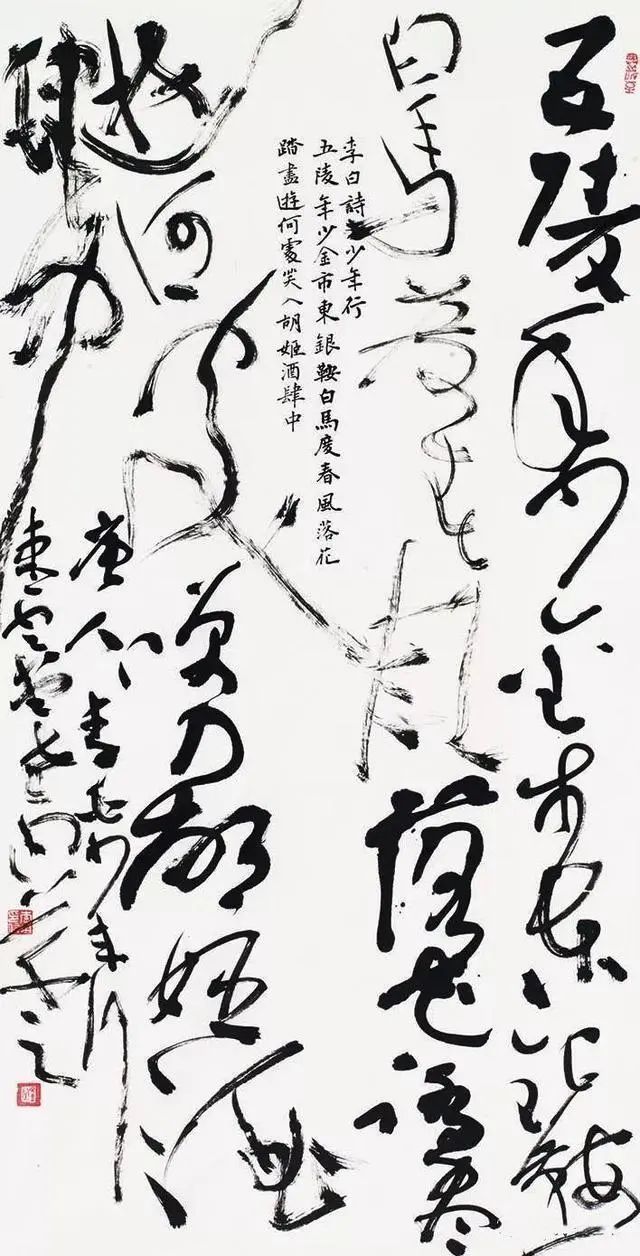 五陵年少金市東銀鞍
白馬度春風落花踏盡
李白詩少年行
五陵年少金市東銀鞍白馬度春風落花
踏盡遊何處笑入胡姬酒肆中
遊何處笑入胡姬酒
肆中
唐人